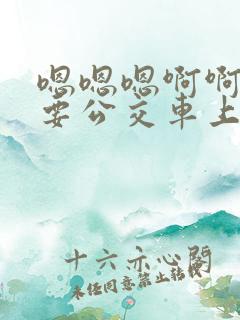 嗯嗯嗯啊啊
要公交車上
十六示心閣
未任同意禁止转载